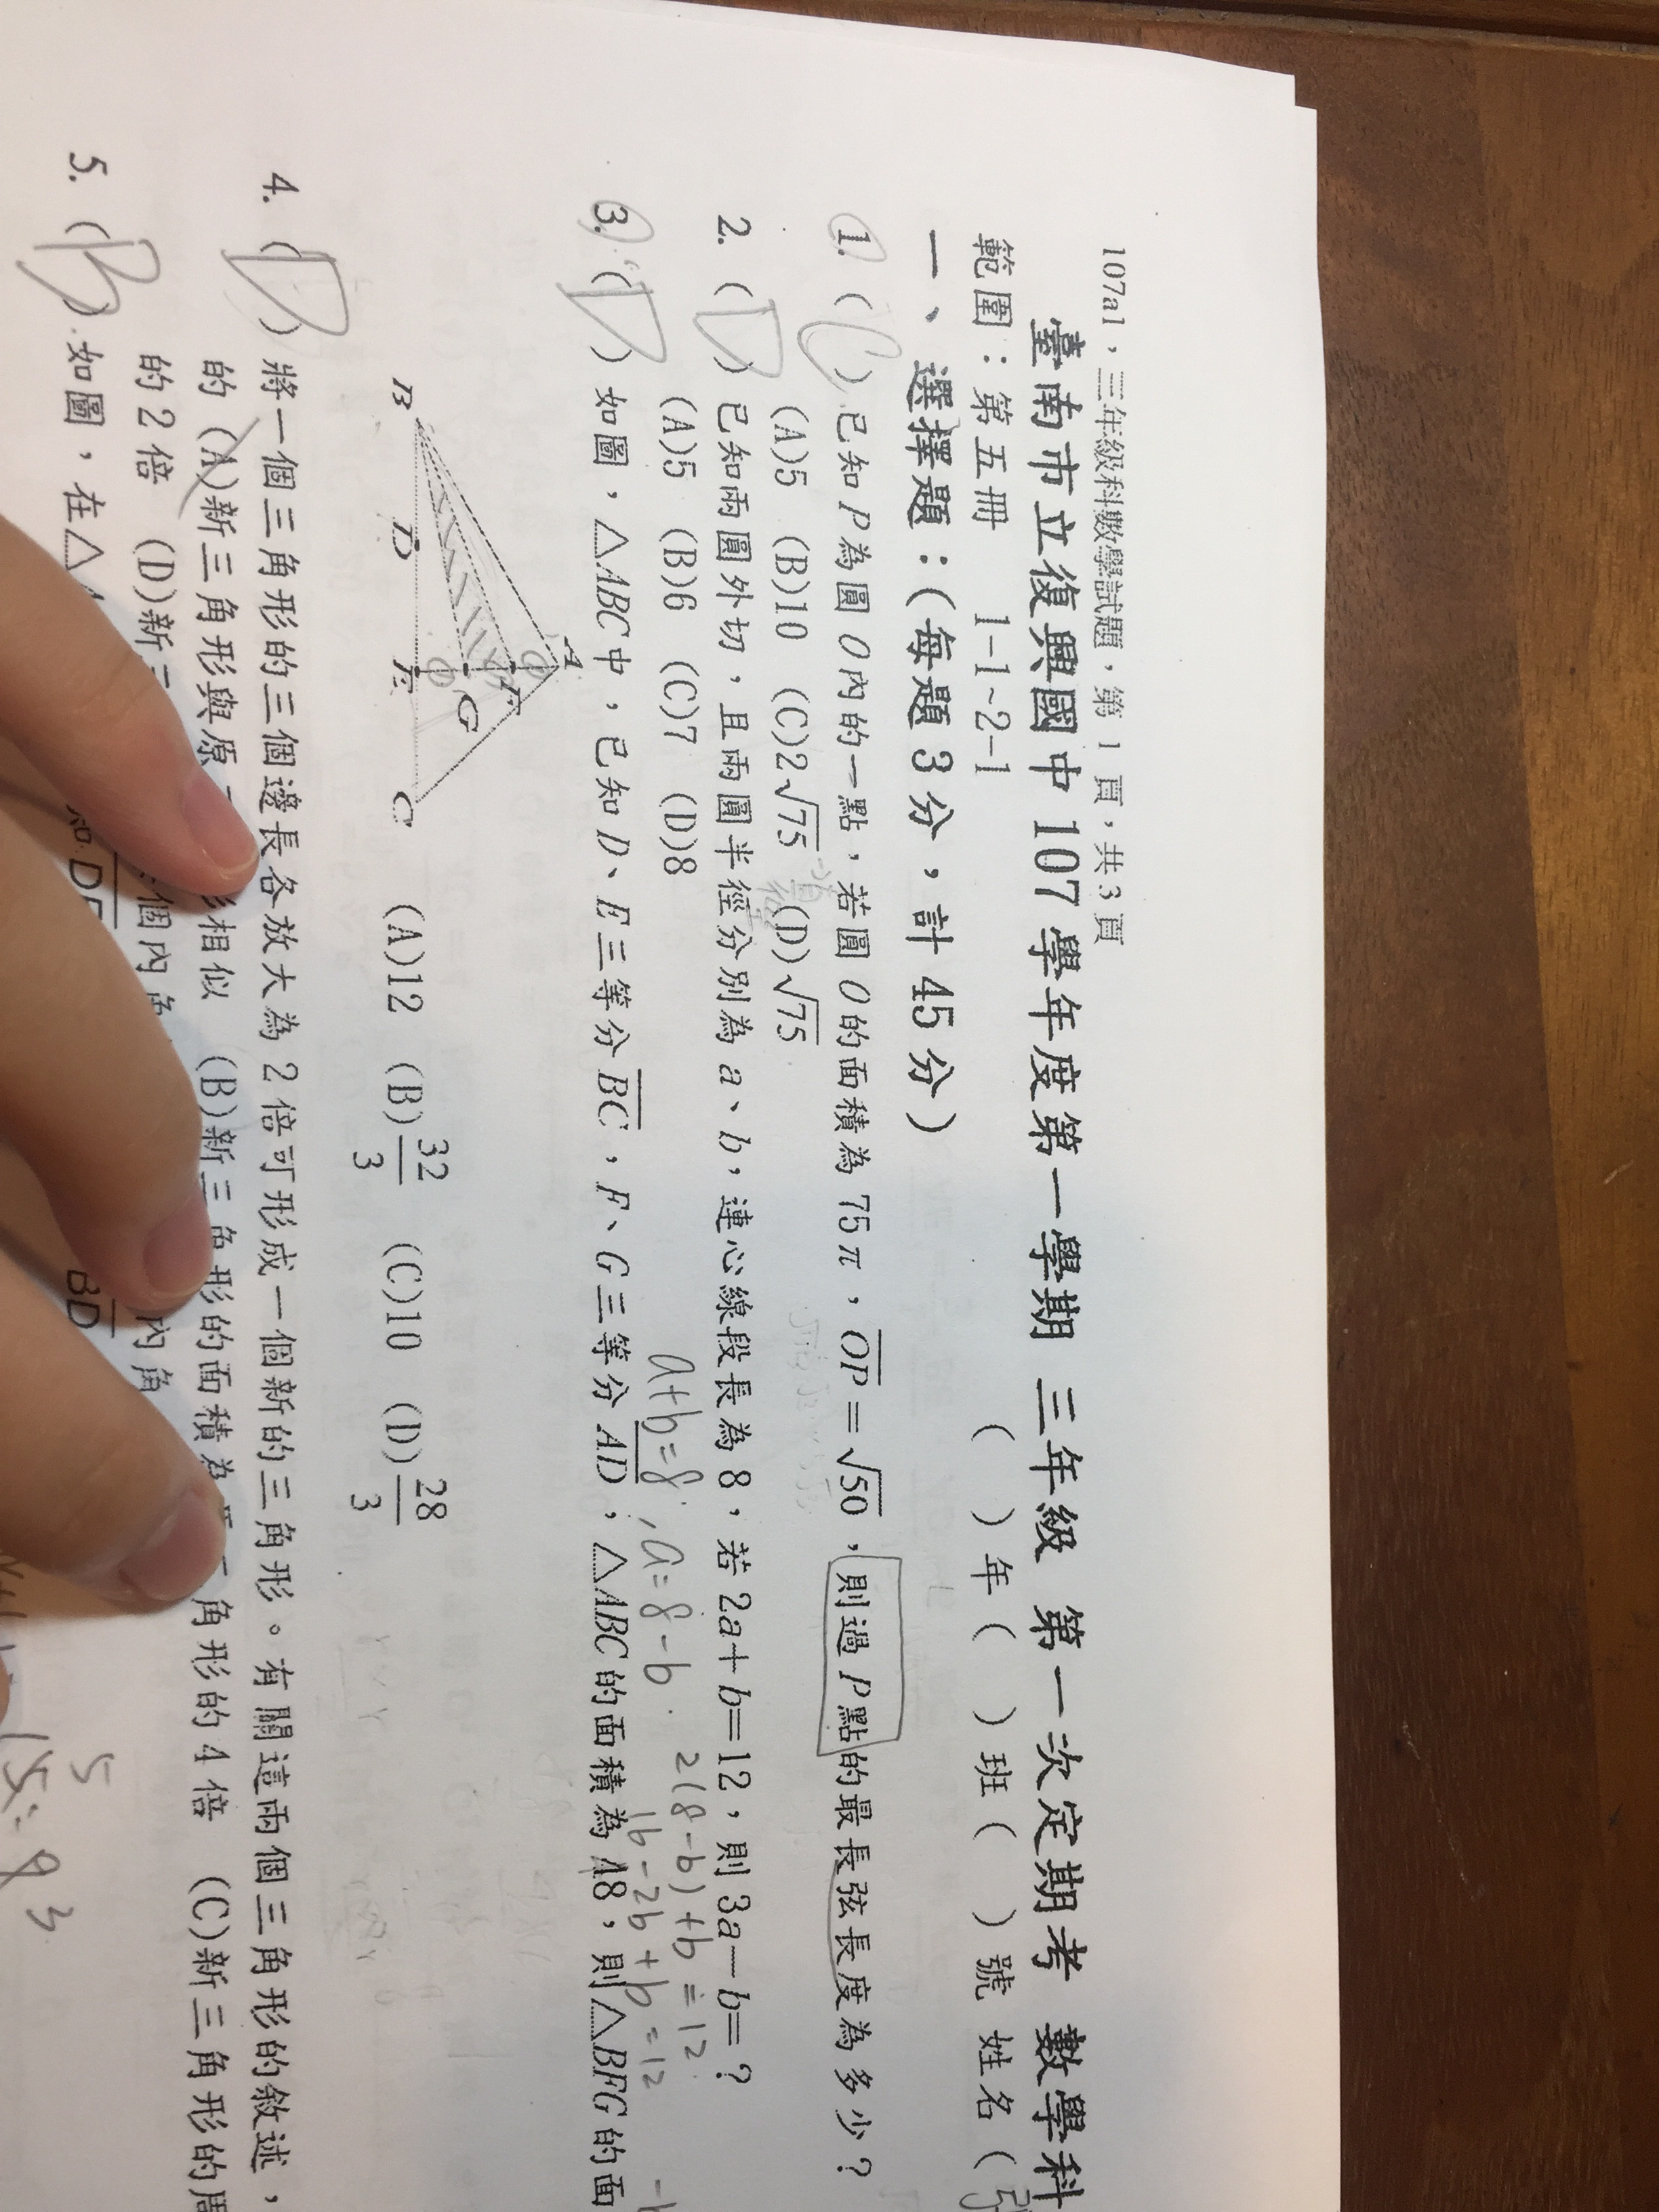 107a1，三年級科數學試題，第 1 頁，共 3 頁
臺南市立復興國中 107 學年度第一學期 三年級 第一次定期考 數學科
範圍：第五冊 1-1~2-1 （ ）年（ ）班（ ）號 姓名（
一、選擇題：（每題 3 分，計 45 分）
1. (C) 已知 P 為圓 O 內的一點，若圓 O 的面積為 75π，OP＝√50，則過 P 點的最長弦長度為多少？
(A)5 (B)10 (C)2√75 (D)√75
2. (D) 已知兩圓外切，且兩圓半徑分別為 a、b，連心線段長為 8，若 2a＋b＝12，則 3a－b＝？
(A)5 (B)6 (C)7 (D)8
a+b=8, a=8-b
2(8-b)+b=12
16-2b+b=12
3. (D) 如圖，△ABC 中，已知 D、E 三等分 BC，F、G 三等分 AD，△ABC 的面積為 48，則△BFG 的面
A
F
G
B D E C
(A)12 (B)32/3 (C)10 (D)28/3
4. (D) 將一個三角形的三個邊長各放大為 2 倍可形成一個新的三角形。有關這兩個三角形的敘述，
的 (A)新三角形與原 相似 (B)新三角形的面積為 角形的 4 倍 (C)新三角形的周
的 2 倍 (D)新三 個內角 內角
5. (B) 如圖，在△ DE BD